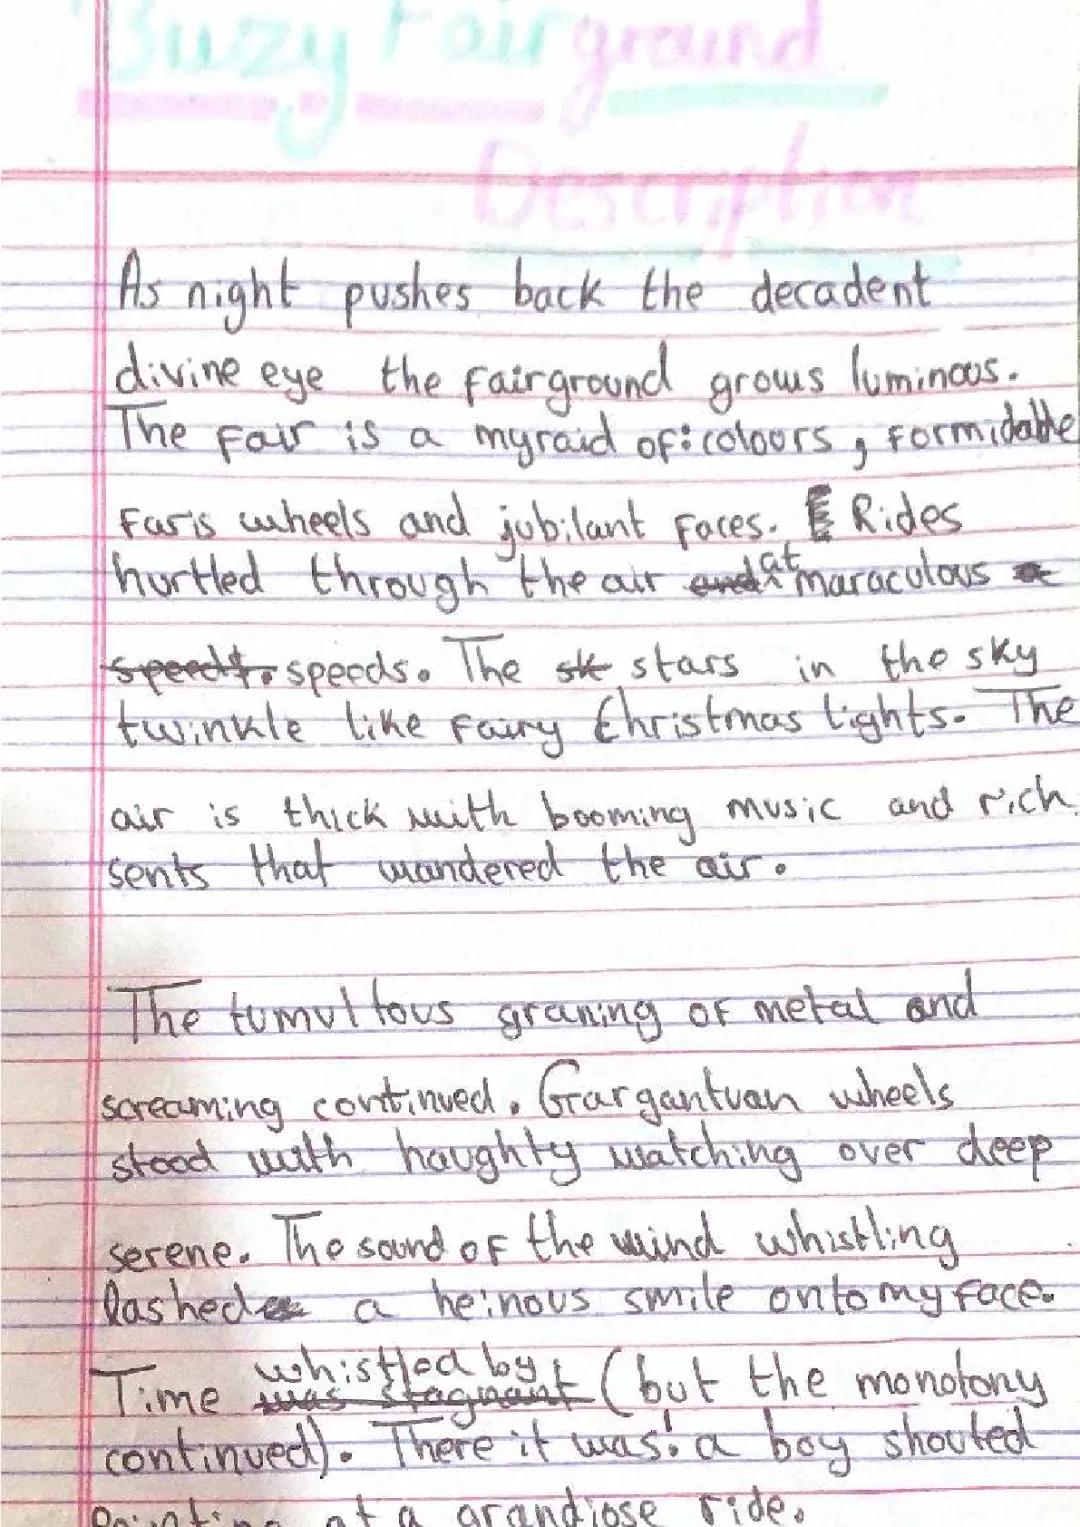 Buzy Fairground
Description
As night pushes back the decadent
divine eye the fairground grows luminous.
The fair is a myraid of: colours, formidable
Faris wheels and jubilant faces. Rides
hurtled through the air at maraculous
speeds. The stars in the sky
twinkle like fairy Christmas lights. The
air is thick with booming music and rich
sents that wandered the air.
The tumultous graning of metal and
screaming continued. Gargantuan wheels
stood with haughty watching over deep
serene. The sound of the wind whistling
lashed a heinous smile onto my face.
Time whistled by (but the monotony
continued). There it was: a boy shouted
Pointing at a grandiose ride.